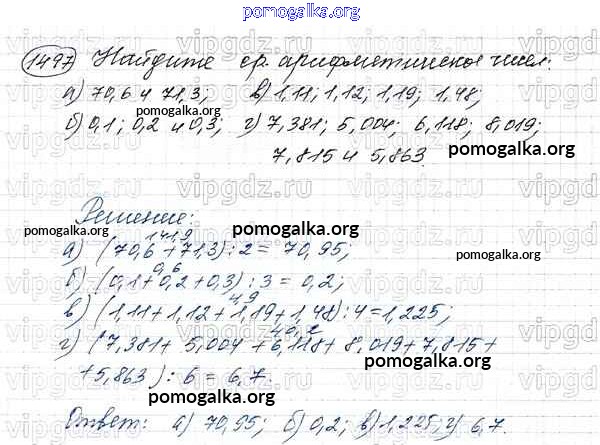 pomogalka.org
1497 Найдите ср. арифметическое чисел:
а) 70,6 и 71,3; в) 1,11; 1,12; 1,19; 1,48;
б) 0,1; 0,2 и 0,3; г) 7,381; 5,004; 6,118; 8,019;
7,815 и 5,863.
pomogalka.org
pomogalka.org
Решение:
pomogalka.org
pomogalka.org
141,9
а) (70,6 + 71,3) : 2 = 70,95;
0,6
б) (0,1 + 0,2 + 0,3) : 3 = 0,2;
4,9
в) (1,11 + 1,12 + 1,19 + 1,48) : 4 = 1,225;
40,2
г) (7,381 + 5,004 + 6,118 + 8,019 + 7,815 +
pomogalka.org
+ 5,863) : 6 = 6,7.
pomogalka.org
Ответ: а) 70,95; б) 0,2; в) 1,225; г) 6,7.
pomogalka.org